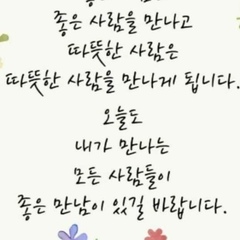 좋은 사람을 만나고
따뜻한 사람은
따뜻한 사람을 만나게 됩니다.
오늘도
내가 만나는
모든 사람들이
좋은 만남이 있길 바랍니다.